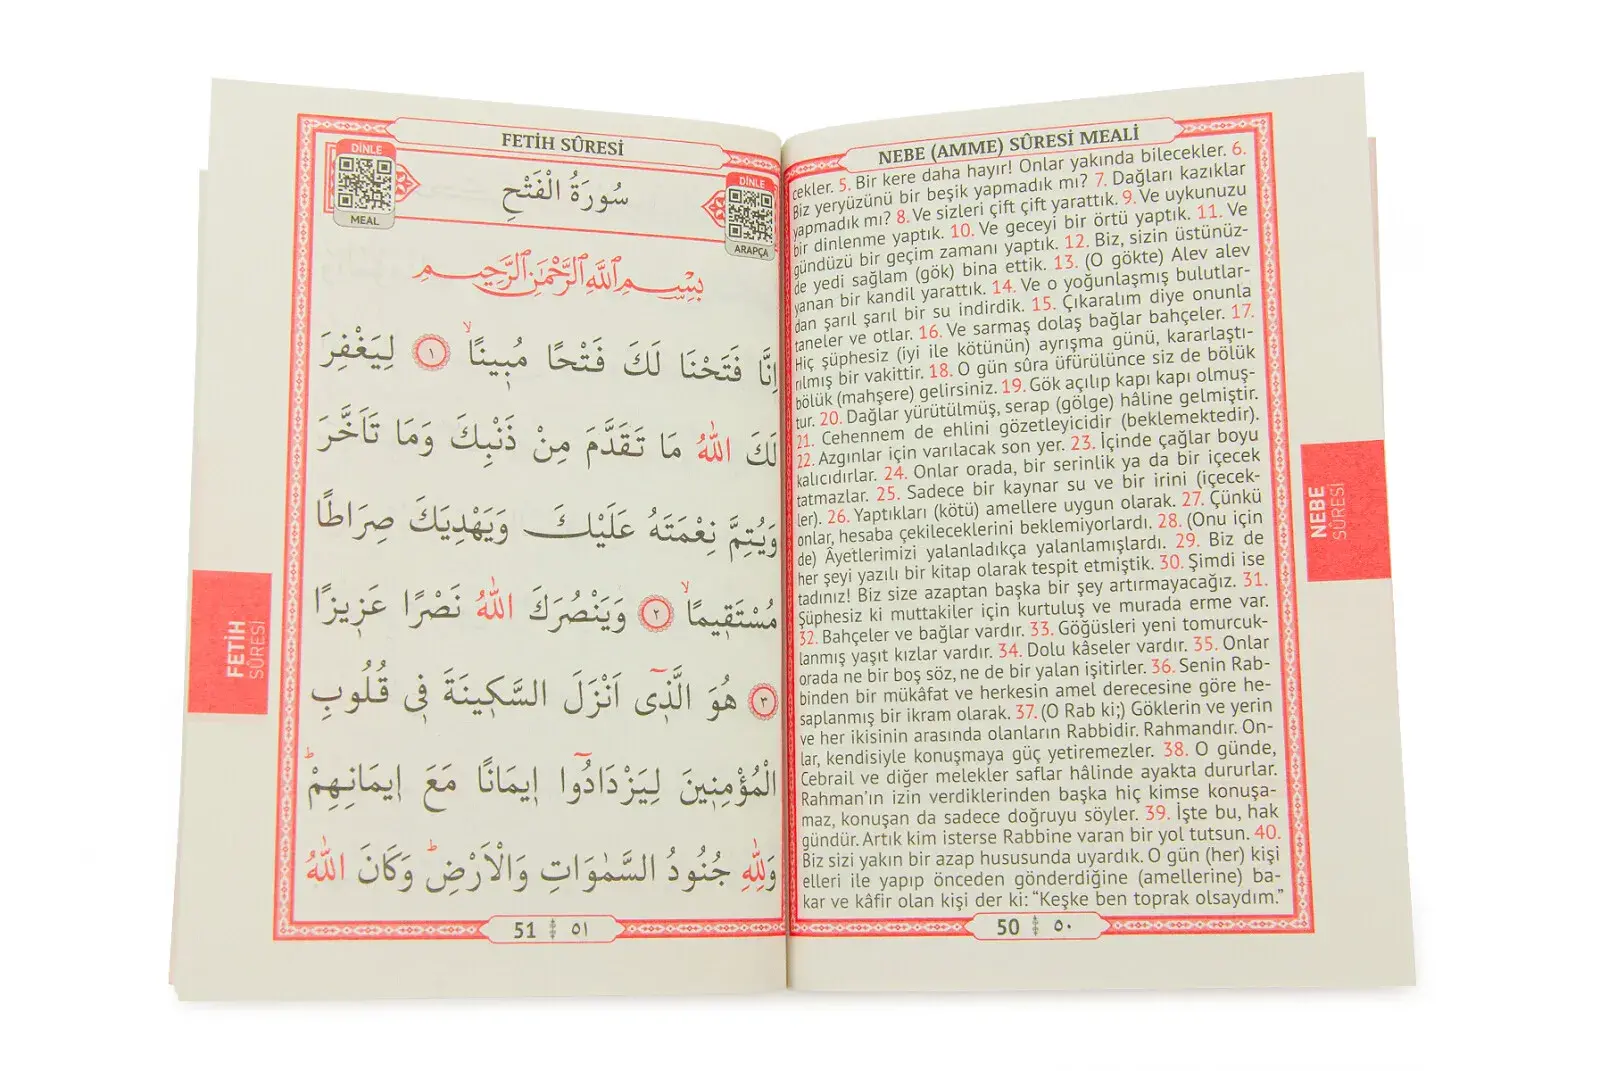 NEBE (AMME) SÛRESİ MEALİ
cekler. 5. Bir kere daha hayır! Onlar yakında bilecekler. 6.
Biz yeryüzünü bir beşik yapmadık mı? 7. Dağları kazıklar
yapmadık mı? 8. Ve sizleri çift çift yarattık. 9. Ve uykunuzu
bir dinlenme yaptık. 10. Ve geceyi bir örtü yaptık. 11. Ve
gündüzü bir geçim zamanı yaptık. 12. Biz, sizin üstünüz-
de yedi sağlam (gök) bina ettik. 13. (O gökte) Alev alev
yanan bir kandil yarattık. 14. Ve o yoğunlaşmış bulutlar-
dan şarıl şarıl bir su indirdik. 15. Çıkaralım diye onunla
taneler ve otlar. 16. Ve sarmaş dolaş bağlar bahçeler. 17.
Hiç şüphesiz (iyi ile kötünün) ayrışma günü, kararlaştı-
rılmış bir vakittir. 18. O gün sûra üfürülünce siz de bölük
bölük (mahşere) gelirsiniz. 19. Gök açılıp kapı kapı olmuş-
tur. 20. Dağlar yürütülmüş, serap (gölge) hâline gelmiştir.
21. Cehennem de ehlini gözetleyicidir (beklemektedir).
22. Azgınlar için varılacak son yer. 23. İçinde çağlar boyu
kalıcıdırlar. 24. Onlar orada, bir serinlik ya da bir içecek
tatmazlar. 25. Sadece bir kaynar su ve bir irini (içecek-
ler). 26. Yaptıkları (kötü) amellere uygun olarak. 27. Çünkü
onlar, hesaba çekileceklerini beklemiyorlardı. 28. (Onu için
de) Âyetlerimizi yalanladıkça yalanlamışlardı. 29. Biz de
her şeyi yazılı bir kitap olarak tespit etmiştik. 30. Şimdi ise
tadınız! Biz size azaptan başka bir şey artırmayacağız. 31.
Şüphesiz ki muttakiler için kurtuluş ve murada erme var.
32. Bahçeler ve bağlar vardır. 33. Göğüsleri yeni tomurcuk-
lanmış yaşıt kızlar vardır. 34. Dolu kâseler vardır. 35. Onlar
orada ne bir boş söz, ne de bir yalan işitirler. 36. Senin Rab-
binden bir mükâfat ve herkesin amel derecesine göre he-
saplanmış bir ikram olarak. 37. (O Rab ki;) Göklerin ve yerin
ve her ikisinin arasında olanların Rabbidir. Rahmandır. On-
lar, kendisiyle konuşmaya güç yetiremezler. 38. O günde,
Cebrail ve diğer melekler saflar hâlinde ayakta dururlar.
Rahman'ın izin verdiklerinden başka hiç kimse konuşa-
maz, konuşan da sadece doğruyu söyler. 39. İşte bu, hak
gündür. Artık kim isterse Rabbine varan bir yol tutsun. 40.
Biz sizi yakın bir azap hususunda uyardık. O gün (her) kişi
elleri ile yapıp önceden gönderdiğine (amellerine) ba-
kar ve kâfir olan kişi der ki: “Keşke ben toprak olsaydım.”
50 ٥٠
NEBE
SÛRESİ
FETİH SÛRESİ
DİNLE
MEAL
سُورَةُ الْفَتْحِ
DİNLE
ARAPÇA
بِسْمِ اللّٰهِ الرَّحْمٰنِ الرَّحِيمِ
اِنَّا فَتَحْنَا لَكَ فَتْحًا مُب۪ينًاۙ ﴿١﴾ لِيَغْفِرَ
لَكَ اللّٰهُ مَا تَقَدَّمَ مِنْ ذَنْبِكَ وَمَا تَاَخَّرَ
وَيُتِمَّ نِعْمَتَهُ عَلَيْكَ وَيَهْدِيَكَ صِرَاطًا
مُسْتَق۪يمًاۙ ﴿٢﴾ وَيَنْصُرَكَ اللّٰهُ نَصْرًا عَز۪يزًا
﴿٣﴾ هُوَ الَّذ۪ٓي اَنْزَلَ السَّك۪ينَةَ ف۪ي قُلُوبِ
الْمُؤْمِن۪ينَ لِيَزْدَادُٓوا ا۪يمَانًا مَعَ ا۪يمَانِهِمْۜ
وَلِلّٰهِ جُنُودُ السَّمٰوَاتِ وَالْاَرْضِۜ وَكَانَ اللّٰهُ
51 ٥١
FETİH
SÛRESİ